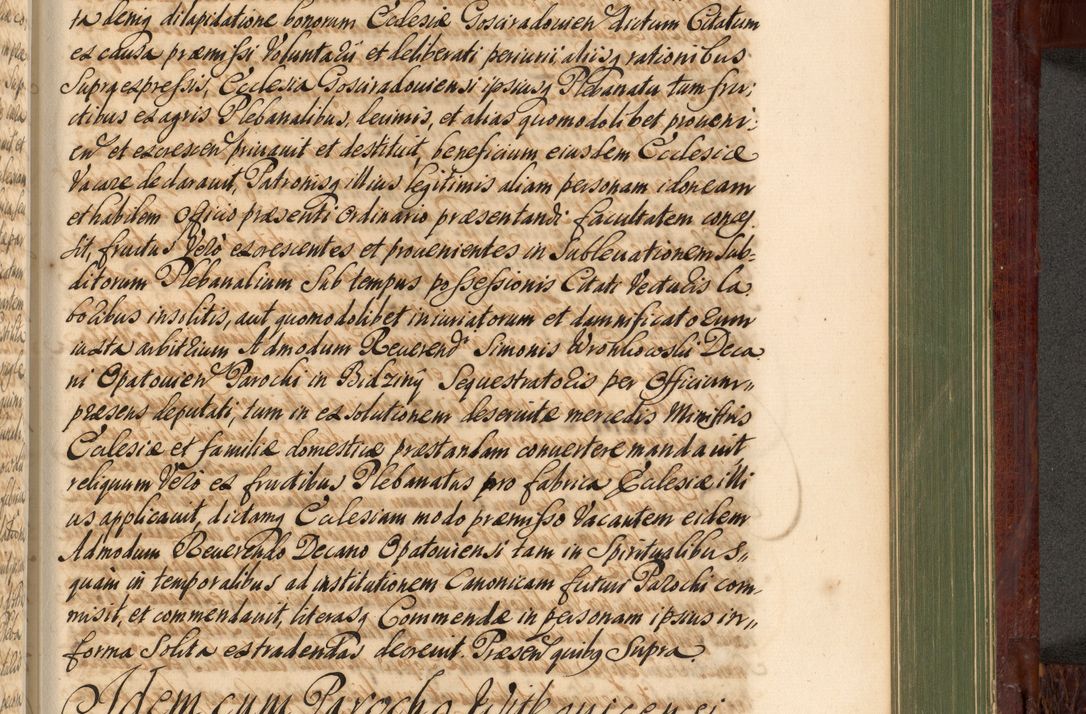 ta deniq dilapidatione bonorum Ecclesiæ Gosciradovien dictum Citatum
ex causa præmissi Voluntarii et deliberati periurii aliisq rationibus
Supra expressis, Ecclesia Gosciradoviensi ipsiusq Plebanatu tum fru-
ctibus ex agris Plebanalibus, decimis, et alias quomodolibet proveni-
en et excrescen privavit et destituit, beneficium eiusdem Ecclesiæ
Vacare declaravit, Patronisq illius legitimis aliam personam idoneam
et habilem Officio præsenti Ordinario præsentandi facultatem conces
sit, fructus Verò excrescentes et provenientes in Sublevationem Sub-
ditorum Plebanalium Sub tempus possessionis Citati Vecturis la
boribus insolitis, aut quomodolibet iniuriatorum et damnificatorum
iuxta arbitrium Admodum Reverend Simonis Wronkowski Deca
ni Opatovien Parochi in Bidziny Sequestratoris per Officium
præsens deputati, tum in exsolutionem deservitæ mercedis Ministris
Ecclesiæ et familiæ domesticæ præstandam convertere mandavit
reliquum Verò ex fructibus Plebanatus pro fabrica Ecclesiæ illi
us applicavit, dictamq Ecclesiam modo præmisso Vacantem eidem
Admodum Reverendo Decano Opatoviensi tam in Spiritualibus
quam in temporalibus ad institutionem Canonicam futuri Parochi com
misit, et commendavit, literasq Commendæ in personam ipsius in
forma Solita extradendas decrevit. Præsen quibq Supra.
Idem cum Parocho